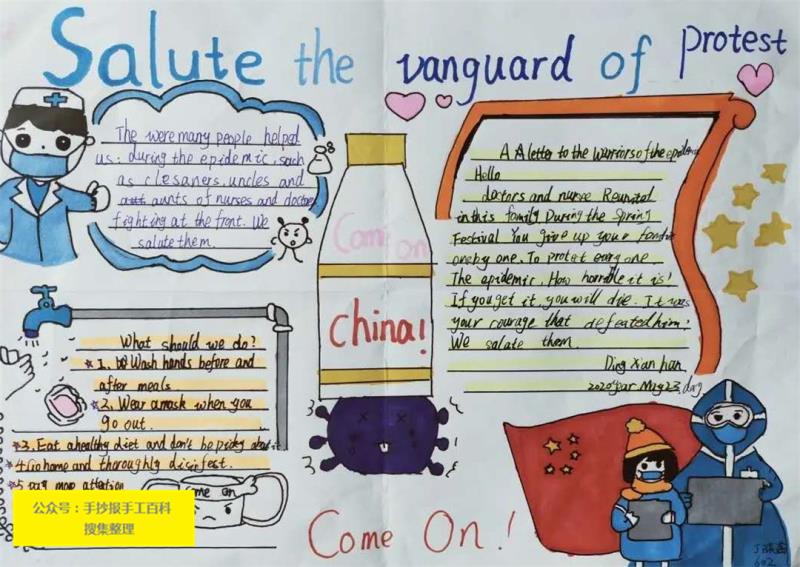 Salute the vanguard of protest
The were many people helped
us. during the epidemic, such
as clesaners, uncles and
aunts of nurses and doctors
fighting at the front. We
salute them.
A letter to the Warriors of the epidemic
Hello
doctors and nurse Reunited
in this family During the Spring
Festival You give up your
one by one. To protect every one
The epidemic. How horrible it is!
If you get it, you will die. It was
your courage that defeated him!
We salute them.
Ding Xian han
2020 year May 23 day
Come on
China!
What should we do?
1. Wash hands before and
after meals
2. Wear a mask when you
go out.
3. Eat a healthy diet and don't be picky about it
4. Go home and thoroughly disinfest.
5. pay more attention
come on
公众号：手抄报手工百科
搜集整理
Come On!
602